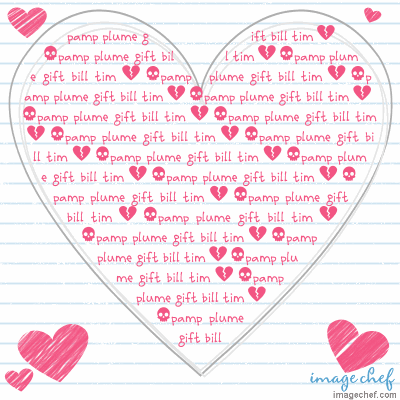 pamp plume g ift bill tim
pamp plume gift bil l tim pamp plum
e gift bill tim pamp plume gift bill tim p
amp plume gift bill tim pamp plume gift bill tim
pamp plume gift bill tim pamp plume gift bill tim
pamp plume gift bill tim pamp plume gift bi
ll tim pamp plume gift bill tim pamp plum
e gift bill tim pamp plume gift bill tim
pamp plume gift bill tim pamp plume gift
bill tim pamp plume gift bill tim
pamp plume gift bill tim pamp
plume gift bill tim pamp plu
me gift bill tim pamp
plume gift bill tim
pamp plume
gift bill
image chef
imagechef.com